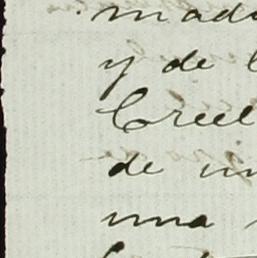 mad
y de
Creel
de un
una